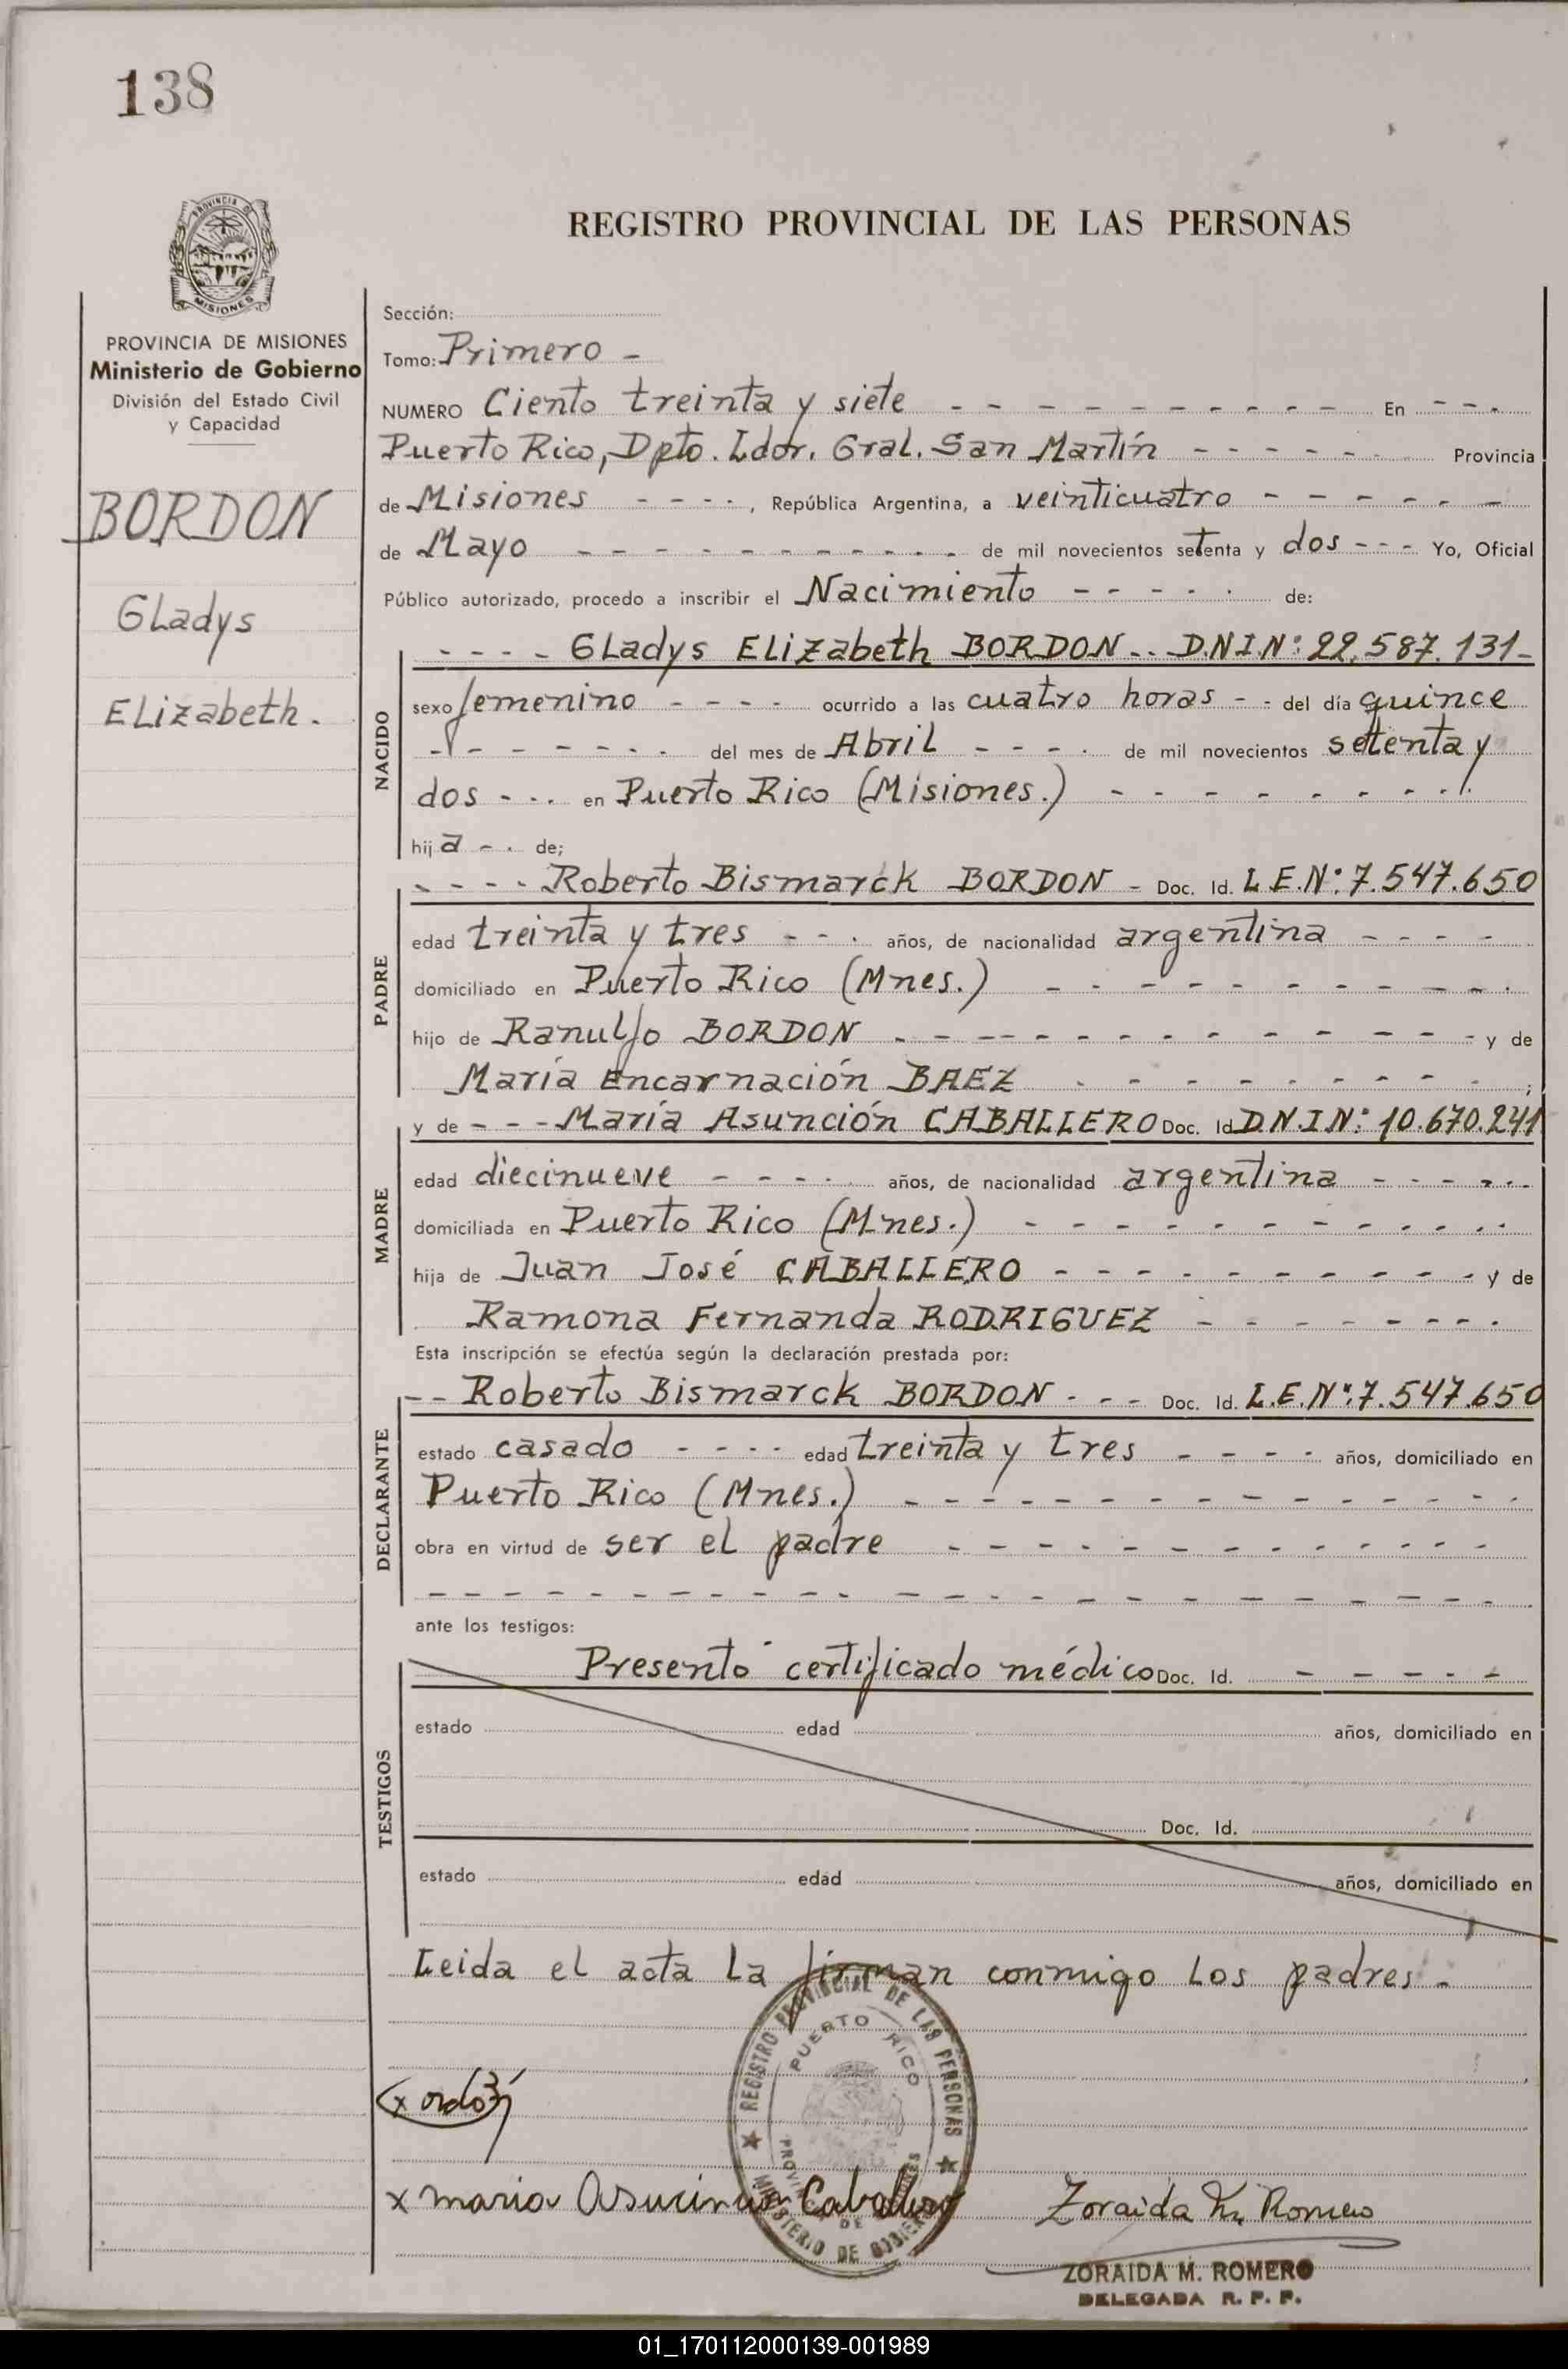 138
PROVINCIA DE MISIONES
Ministerio de Gobierno
División del Estado Civil
y Capacidad
BORDON
Gladys
Elizabeth.
REGISTRO PROVINCIAL DE LAS PERSONAS
Sección:
Tomo: Primero -
NUMERO Ciento treinta y siete - - - - - - - - - - En - - -
Puerto Rico, Dpto. Ldor. Gral. San Martín - - - - - - Provincia
de Misiones - - - - , República Argentina, a veinticuatro - - - - - -
de Mayo - - - - - - - - - - de mil novecientos setenta y dos - - - Yo, Oficial
Público autorizado, procedo a inscribir el Nacimiento - - - - - de:
NACIDO
- - - - Gladys Elizabeth BORDON - - D.N.I.N°: 22.587.131-
sexo femenino - - - - ocurrido a las cuatro horas - - del día quince
- - - - - - - del mes de Abril - - - - de mil novecientos setenta y
dos - - - en Puerto Rico (Misiones.) - - - - - - - - -
hija - - de;
PADRE
- - - - Roberto Bismarck BORDON - Doc. Id. L.E.N°: 7.547.650
edad treinta y tres - - - años, de nacionalidad argentina - - - -
domiciliado en Puerto Rico (Mnes.) - - - - - - - - - - -
hijo de Ranulfo BORDON - - - - - - - - - - - - - y de
María Encarnación BAEZ - - - - - - - - - ;
MADRE
y de - - - María Asunción CABALLERO Doc. Id D.N.I N°: 10.670.241
edad diecinueve - - - - - años, de nacionalidad argentina - - - - - -
domiciliada en Puerto Rico (Mnes.) - - - - - - - - - - - -
hija de Juan José CABALLERO - - - - - - - - - - y de
Ramona Fernanda RODRIGUEZ - - - - - - - -
Esta inscripción se efectúa según la declaración prestada por:
DECLARANTE
- - Roberto Bismarck BORDON - - - Doc. Id. L.E.N°: 7.547.650
estado casado - - - - edad treinta y tres - - - - años, domiciliado en
Puerto Rico (Mnes.) - - - - - - - - - - - - - - -
obra en virtud de ser el padre - - - - - - - - - - - - -
- - - - - - - - - - - - - - - - - - - - - - - -
ante los testigos:
TESTIGOS
Presentó certificado médico Doc. Id. - - - - -
estado edad años, domiciliado en
Doc. Id.
estado edad años, domiciliado en
Leida el acta la firman conmigo los padres. -
REGISTRO PROVINCIAL DE LAS PERSONAS
PUERTO RICO
PROVINCIA DE MISIONES
MINISTERIO DE GOBIERNO
x maria Asuncion Caballero
Zoraida M. Romero
ZORAIDA M. ROMERO
DELEGADA R. P. P.
01_170112000139-001989